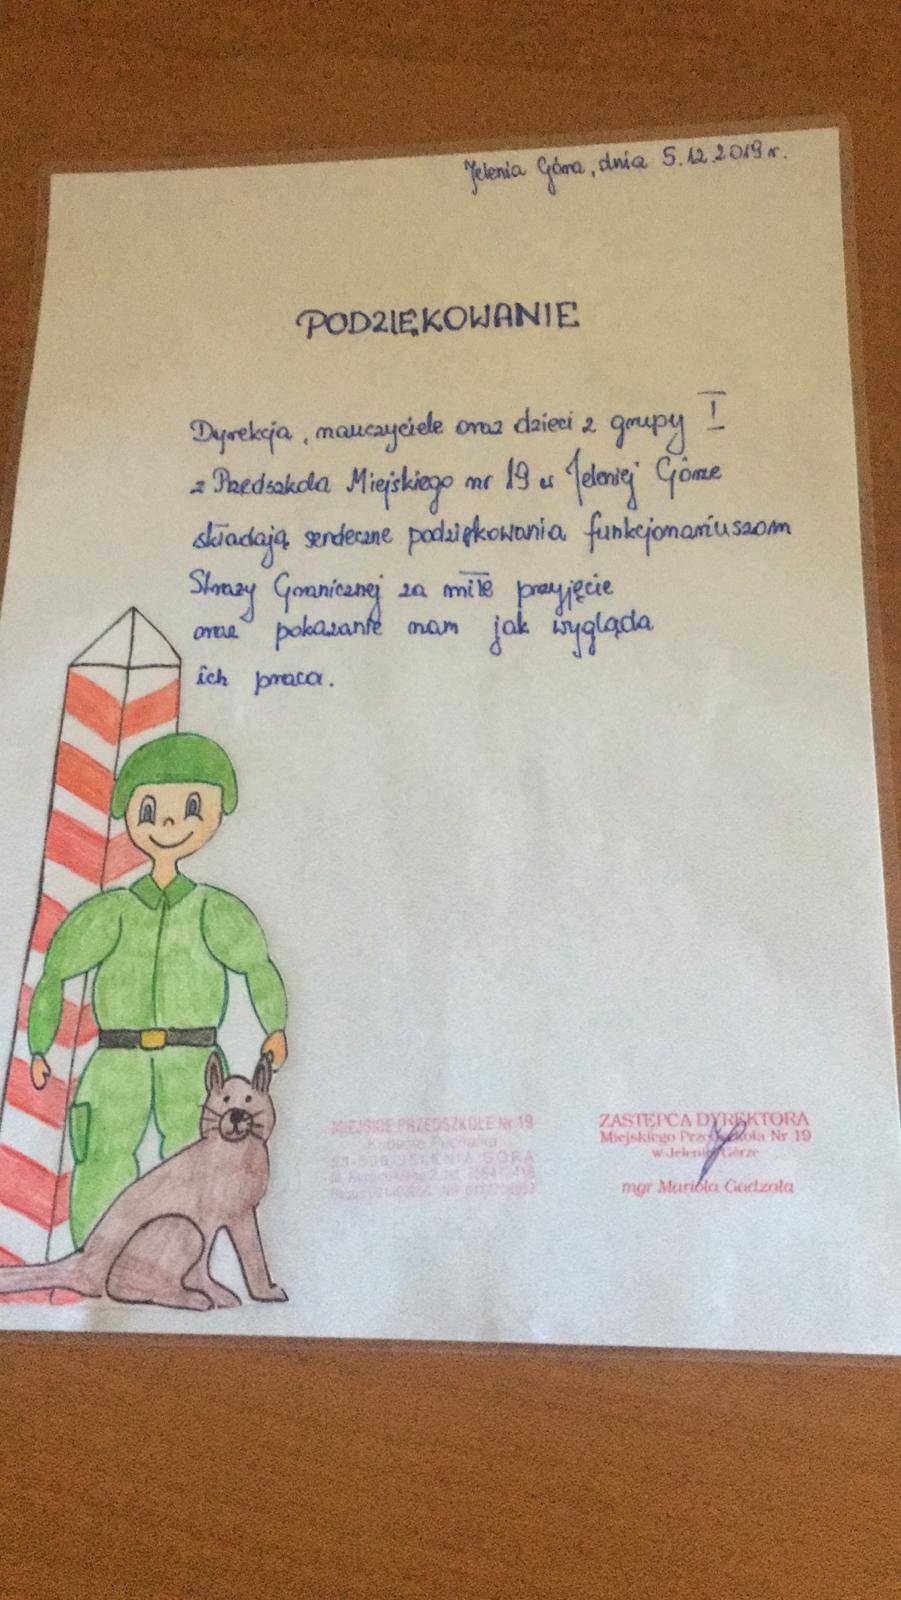 Jelenia Góra, dnia 5.12.2019 r.
PODZIĘKOWANIE
Dyrekcja, nauczyciele oraz dzieci z grupy I
z Przedszkola Miejskiego nr 19 w Jeleniej Górze
składają serdeczne podziękowania funkcjonariuszom
Straży Granicznej za miłe przyjęcie
oraz pokazanie nam jak wygląda
ich praca.
MIEJSKIE PRZEDSZKOLE Nr 19
JELENIA GÓRA
ZASTĘPCA DYREKTORA
Miejskiego Przedszkola Nr 19
w Jeleniej Górze
mgr Mariola Gadzała